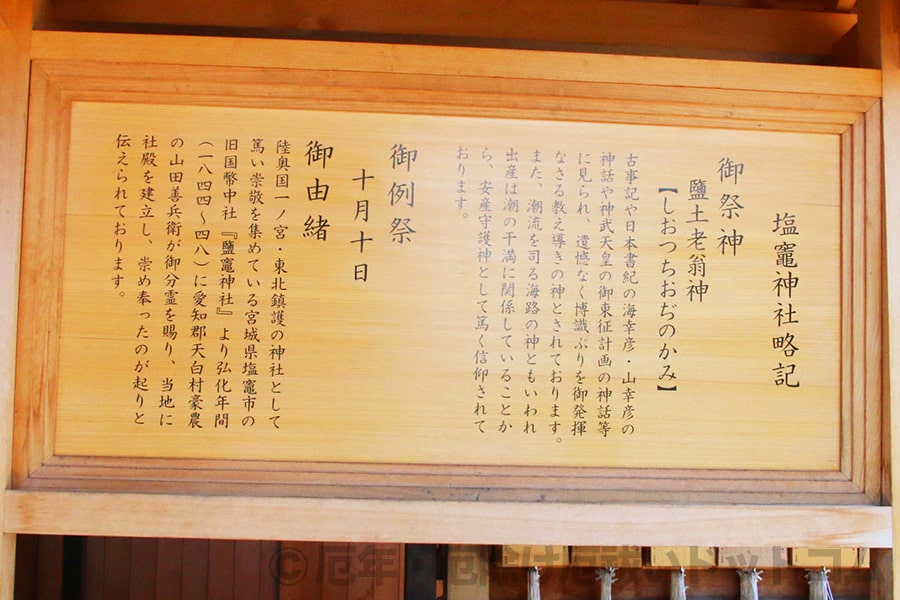 塩竈神社略記
御祭神
鹽土老翁神
【しおつちおぢのかみ】
古事記や日本書紀の海幸彦・山幸彦の
神話や神武天皇の御東征計画の神話等
に見られ、遺憾なく博識ぶりを御発揮
なさる教え導きの神とされております。
また、潮流を司る海路の神ともいわれ
出産は潮の干満に関係していることか
ら、安産守護神として篤く信仰されて
おります。
御例祭
十月十日
御由緒
陸奥国一ノ宮・東北鎮護の神社として
篤い崇敬を集めている宮城県塩竈市の
旧国幣中社『鹽竈神社』より弘化年間
（一八四四～四八）に愛知郡天白村豪農
の山田善兵衛が御分霊を賜り、当地に
社殿を建立し、崇め奉ったのが起りと
伝えられております。
© 厄年・厄除け厄祓いドットコム